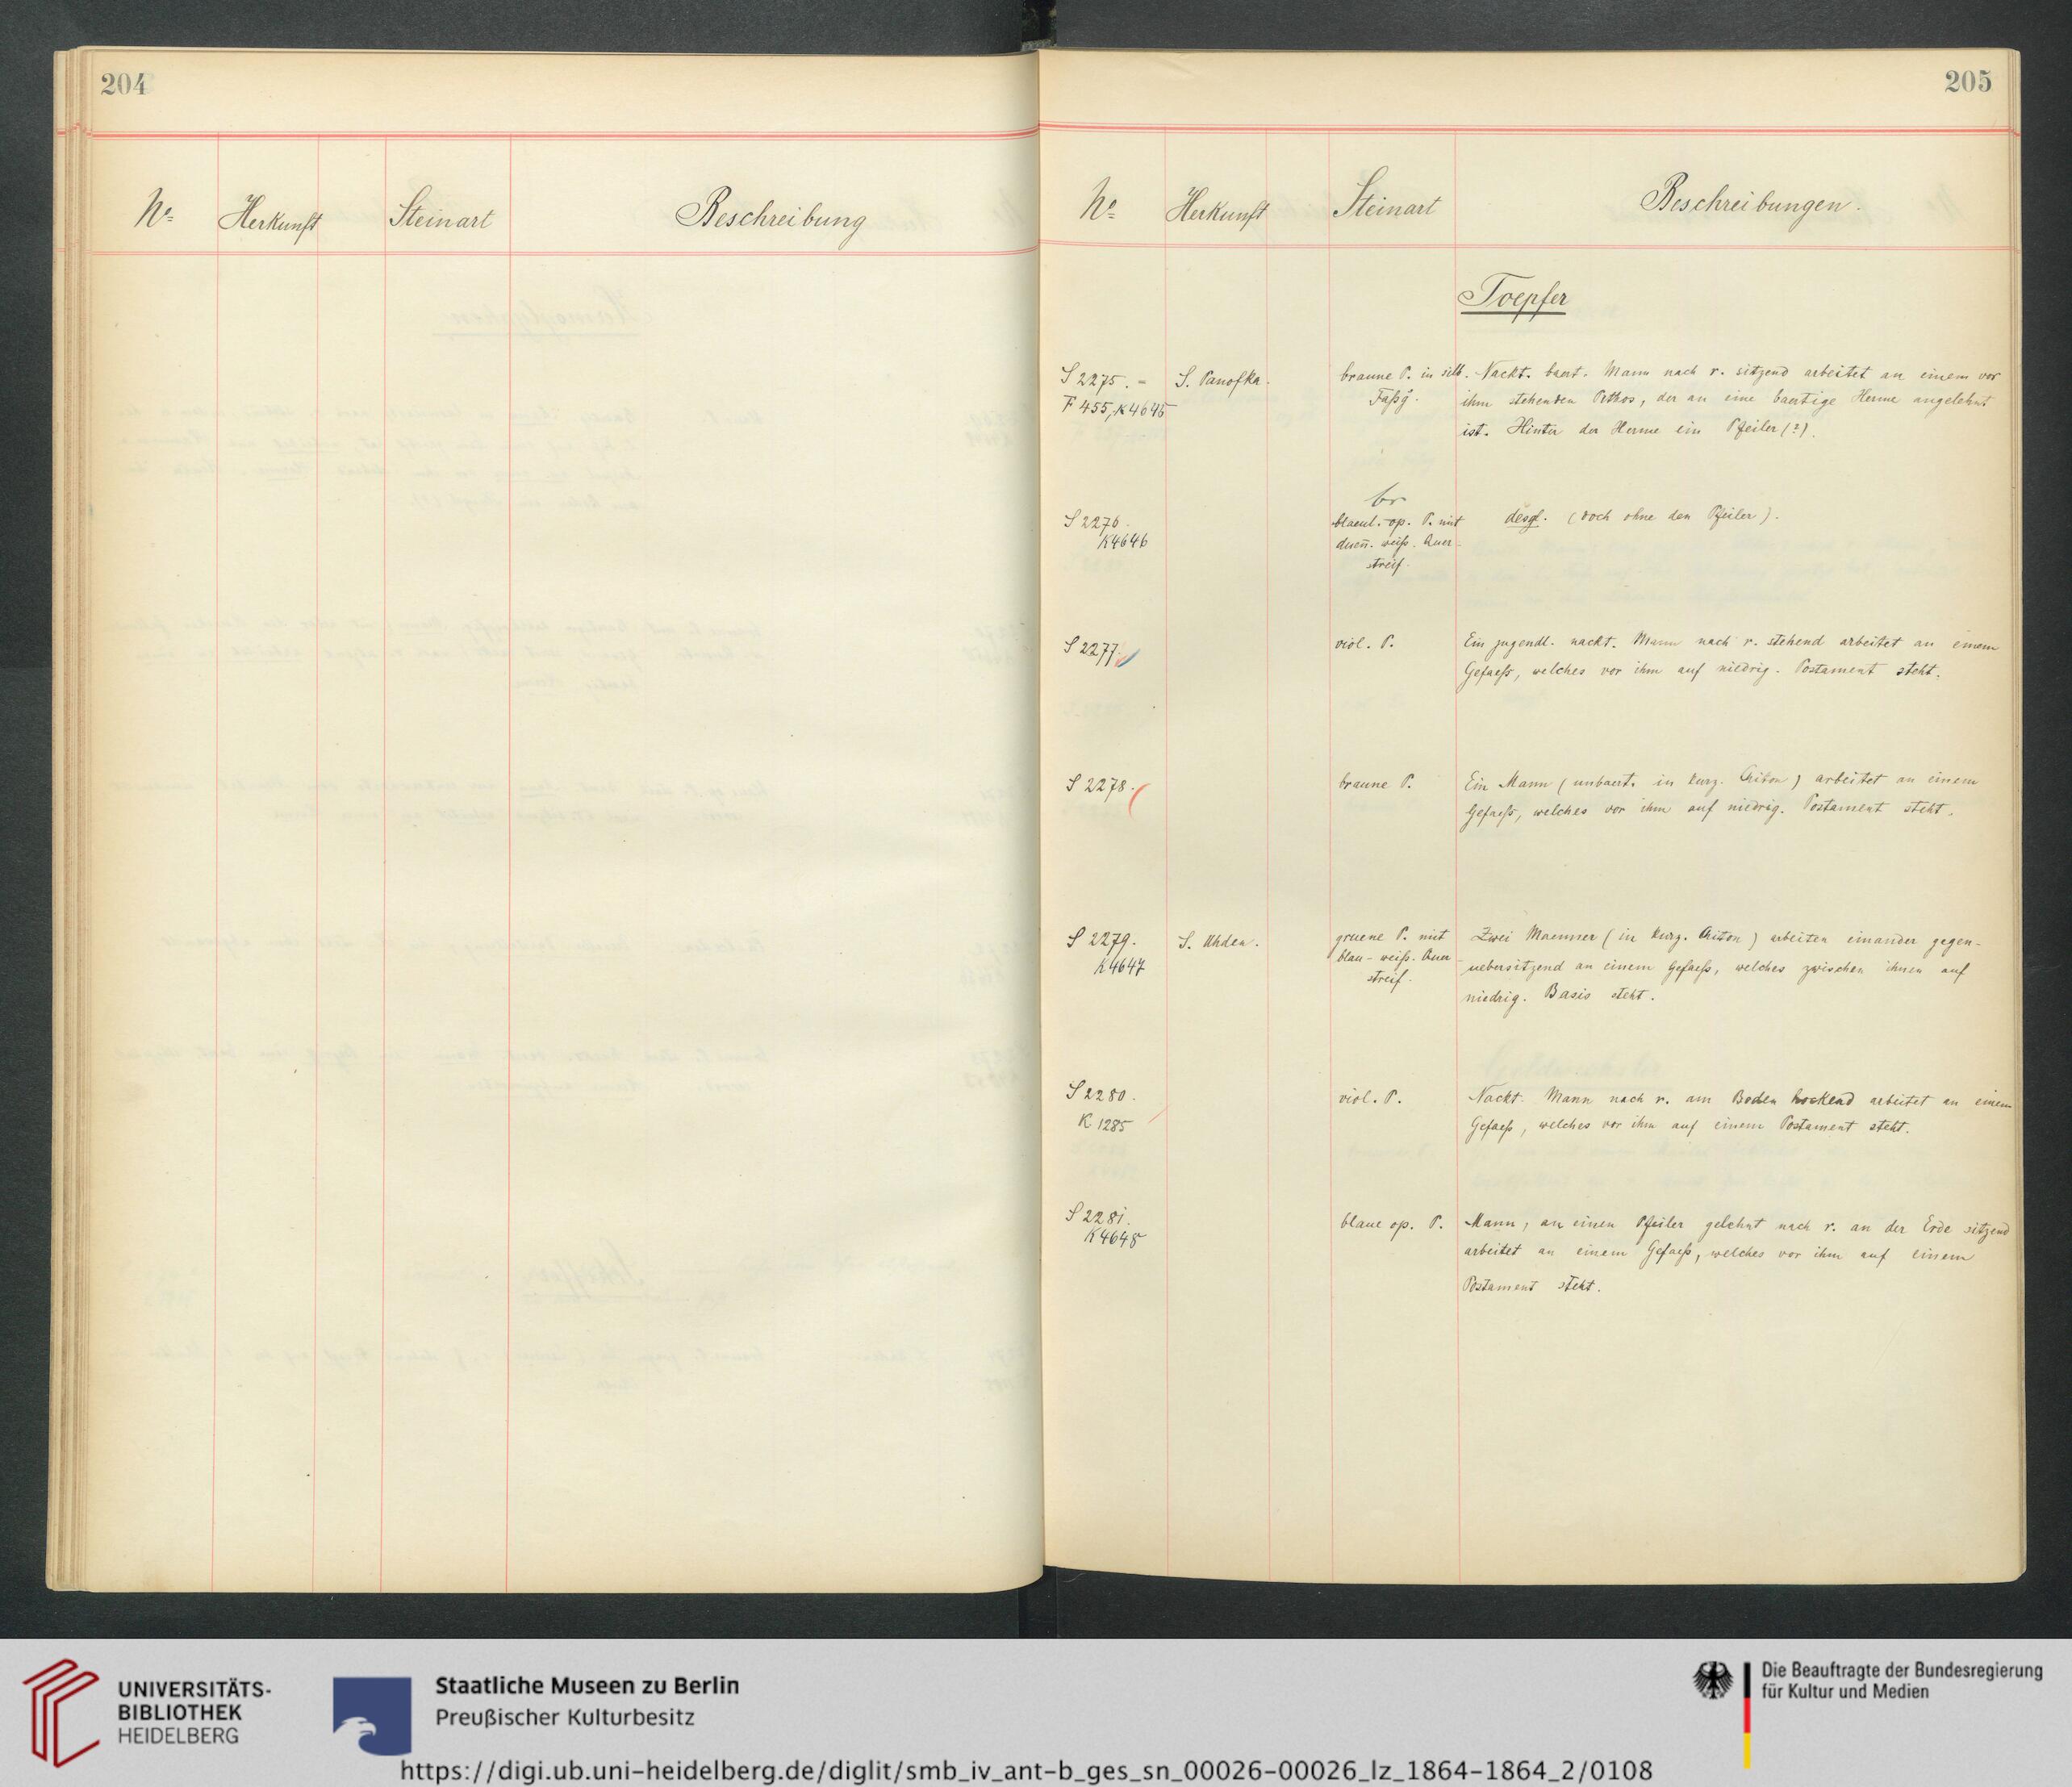 204
Nº Herkunft Steinart Beschreibung
205
Nº Herkunft Steinart Beschreibungen.
Toepfer
S 2275. - S. Panofka. braune P. in silb. Nackt. baert. Mann nach r. sitzend arbeitet an einem vor
F 455, K4645 Faßg. ihm stehenden Pithos, der an eine baertige Herme angelehnt
ist. Hinter der Herme ein Pfeiler (?).
br
S 2276. blaeul.-op. P. mit desgl. (doch ohne den Pfeiler).
K4646 duen̄. weiß. Quer-
streif.
S 2277. viol. P. Ein jugendl. nackt. Mann nach r. stehend arbeitet an einem
Gefaeß, welches vor ihm auf niedrig. Postament steht.
S 2278. braune P. Ein Mann (unbaert. in kurz. Chiton) arbeitet an einem
Gefaeß, welches vor ihm auf niedrig. Postament steht.
S 2279. S. Uhden. gruene P. mit Zwei Maenner (in kurz. Chiton) arbeiten einander gegen-
K4647 blau-weiß. Quer- uebersitzend an einem Gefaeß, welches zwischen ihnen auf
streif. niedrig. Basis steht.
S 2280. viol. P. Nackt. Mann nach r. am Boden hockend arbeitet an einem
K 1285 Gefaeß, welches vor ihm auf einem Postament steht.
S 2281. blaue op. P. Mann, an einen Pfeiler gelehnt nach r. an der Erde sitzend
K4648 arbeitet an einem Gefaeß, welches vor ihm auf einem
Postament steht.
UNIVERSITÄTS-
BIBLIOTHEK
HEIDELBERG
Staatliche Museen zu Berlin
Preußischer Kulturbesitz
Die Beauftragte der Bundesregierung
für Kultur und Medien
https://digi.ub.uni-heidelberg.de/diglit/smb_iv_ant-b_ges_sn_00026-00026_lz_1864-1864_2/0108